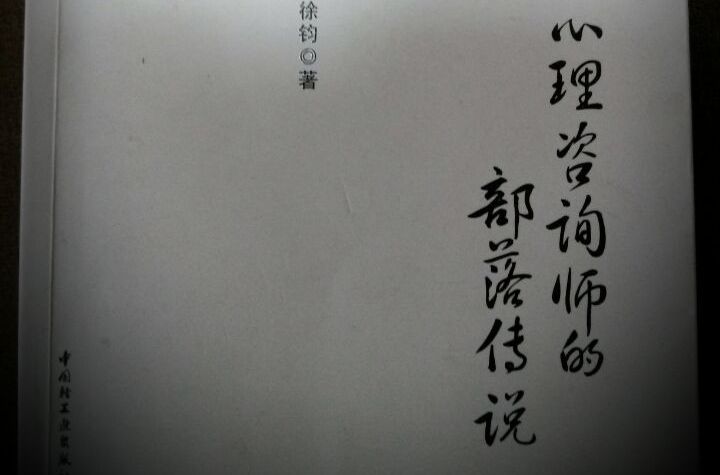 心理咨询师的
部落传说
徐钧◎著
中国轻工业出版社